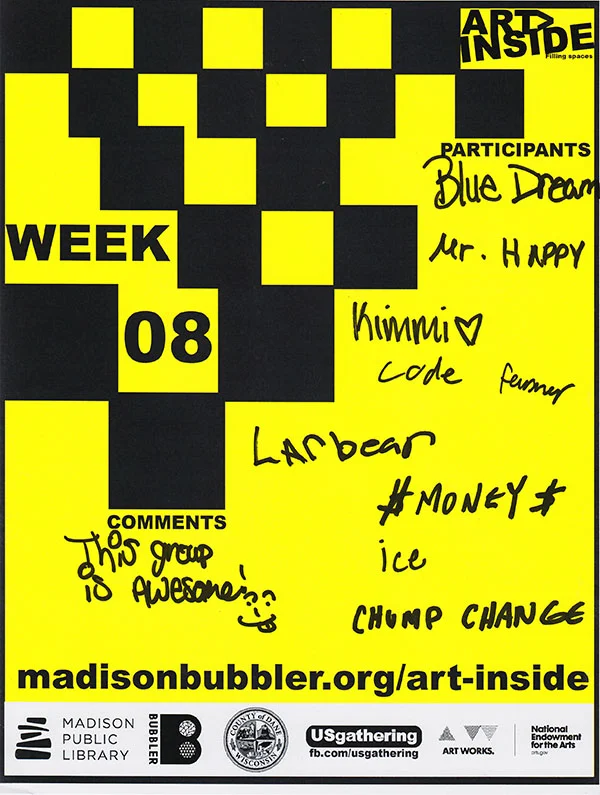 ART>
INSIDE
Filling spaces
PARTICIPANTS
Blue Dream
Mr. HAPPY
WEEK
08
Kimmi♡
code farmer
LArbear
#MONEY$
COMMENTS
This group
is Awesome!
ice
CHUMP CHANGE
madisonbubbler.org/art-inside
MADISON
PUBLIC
LIBRARY
BUBBLER
B
COUNTY of DANE
WISCONSIN
USgathering
fb.com/usgathering
ART WORKS.
National
Endowment
for the Arts
arts.gov